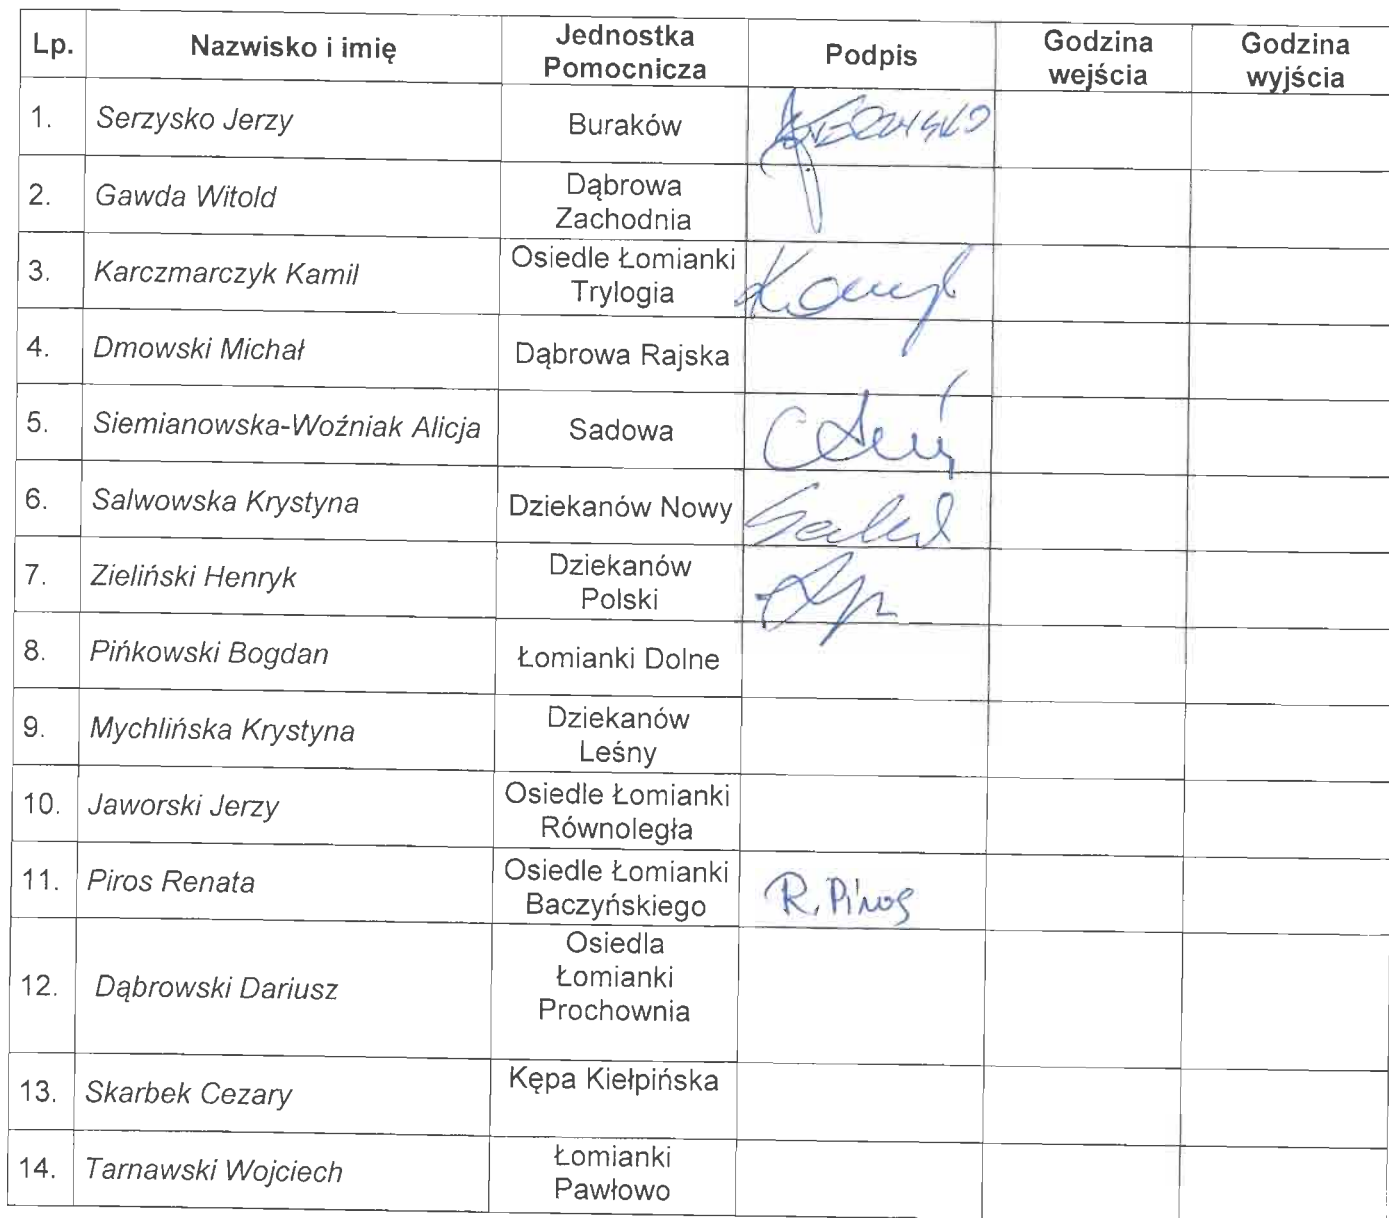 Lp. Nazwisko i imię Jednostka Pomocnicza Podpis Godzina wejścia Godzina wyjścia
1. Serzysko Jerzy Buraków
2. Gawda Witold Dąbrowa Zachodnia
3. Karczmarczyk Kamil Osiedle Łomianki Trylogia
4. Dmowski Michał Dąbrowa Rajska
5. Siemianowska-Woźniak Alicja Sadowa
6. Salwowska Krystyna Dziekanów Nowy
7. Zieliński Henryk Dziekanów Polski
8. Pińkowski Bogdan Łomianki Dolne
9. Mychlińska Krystyna Dziekanów Leśny
10. Jaworski Jerzy Osiedle Łomianki Równoległa
11. Piros Renata Osiedle Łomianki Baczyńskiego R. Piros
12. Dąbrowski Dariusz Osiedla Łomianki Prochownia
13. Skarbek Cezary Kępa Kiełpińska
14. Tarnawski Wojciech Łomianki Pawłowo